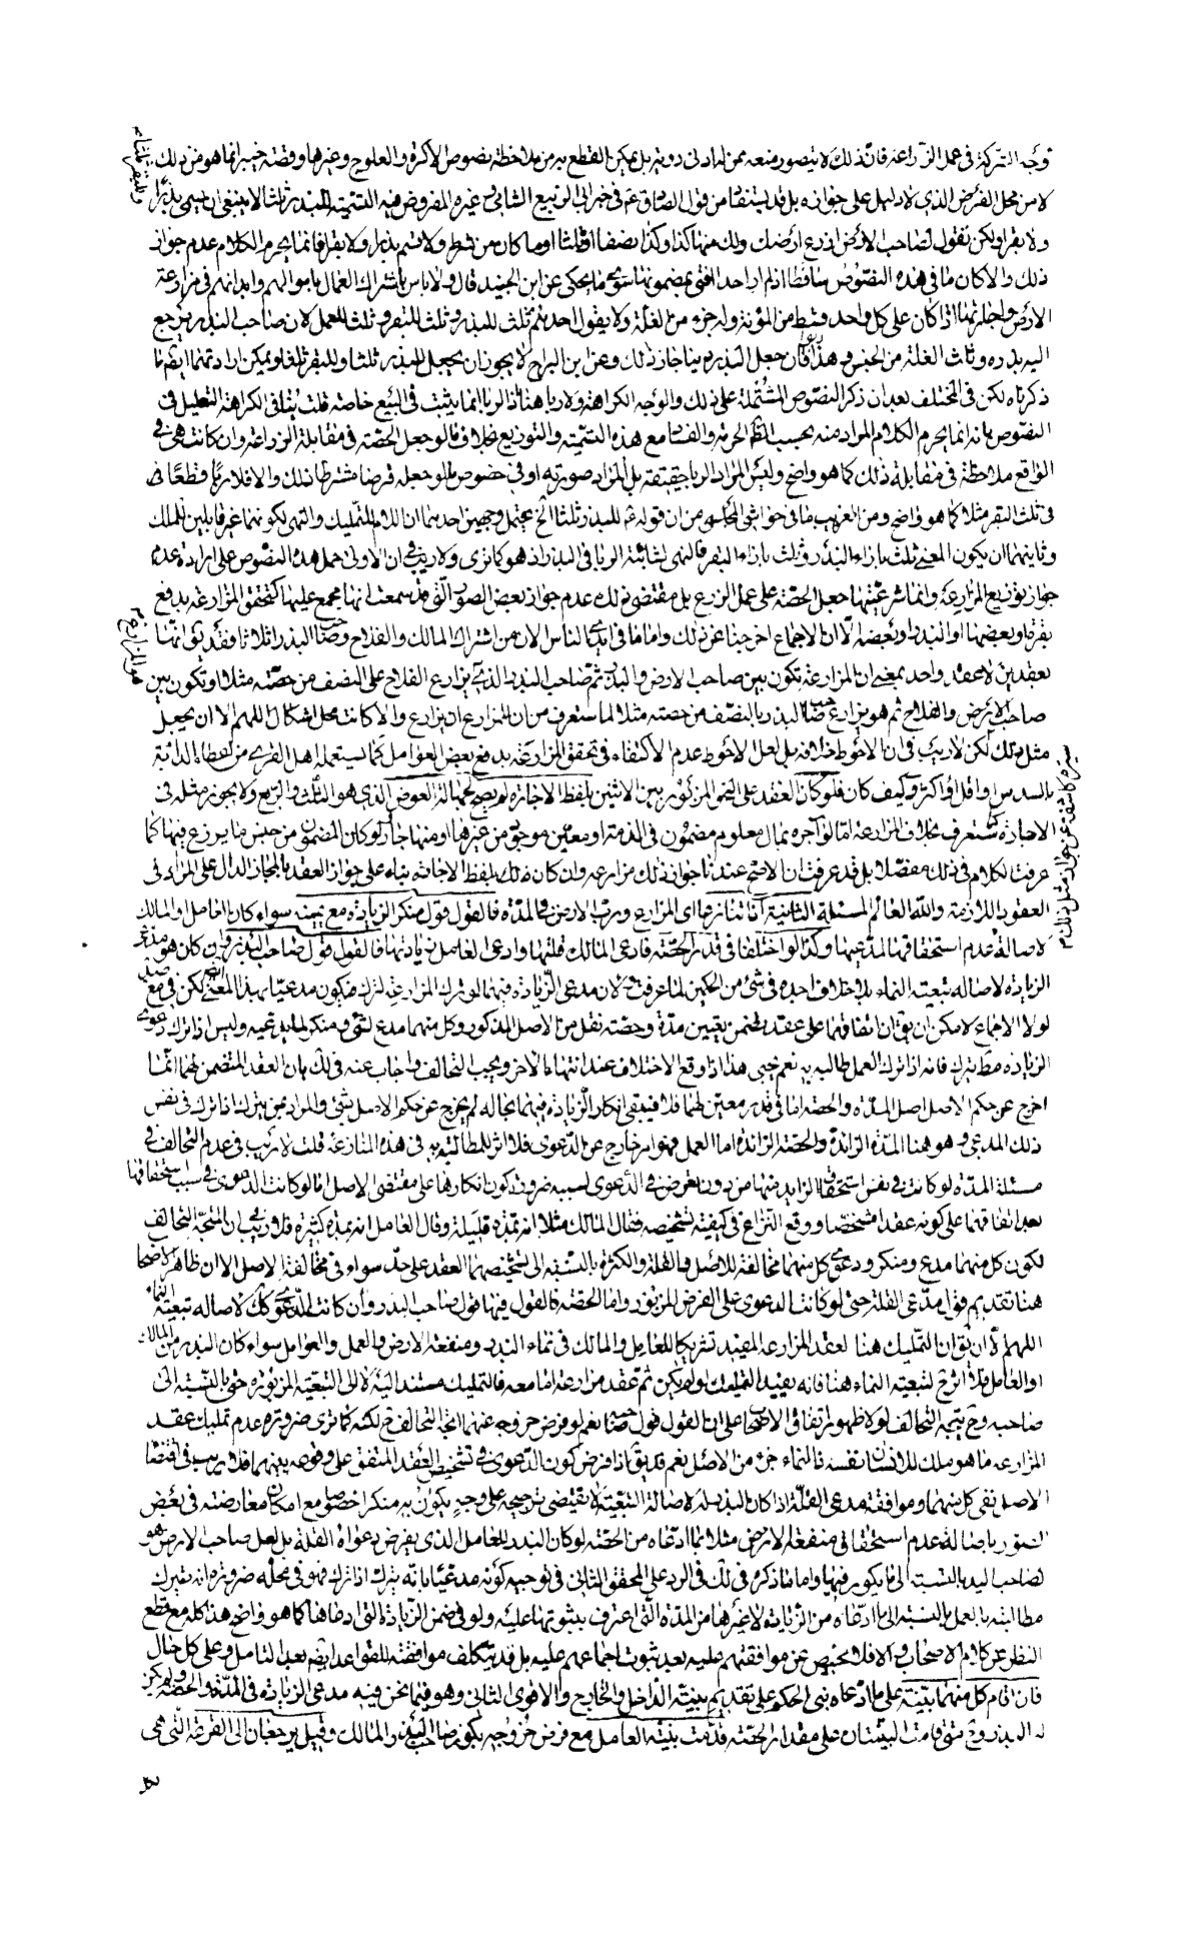 توجه الشركة في عمل الزراعة فان ذلك لا يتصور منعه ممن له ادنى دربة بل يمكن القطع به من ملاحظة نصوص الاكرة والعلوج وغيرها وقصة خيبر انما هو من ذلك
لا من محل الفرض الذي لا دليل على جوازه بل قد يستفاد من قول الصادق ع في خبر ابي الربيع الشامي وغيره المفروض فيه التسمية للبذر ثلثا لا ينبغي ان يسمي بذرا
ولا بقرا ولكن يقول لصاحب الارض ازرع ارضك ولك منها كذا وكذا نصفا او ثلثا او ما كان من شرط ولا يسم بذرا ولا بقرا فانما يحرم الكلام عدم جواز
ذلك والا كان ما في هذه النصوص ساقطا اذ لم ار احدا افتى بمضمونها سوى ما يحكى عن ابن الجنيد قال ولا باس باشتراك العمال باموالهم وابدانهم في مزارعة
الارض واجارتها اذا كان على كل واحد قسط من المؤنة وله جزء من الغلة ولا يقول احدهم ثلث للبذر وثلث للبقر وثلث للعمل لان صاحب البذر يرجع
اليه بذره وثلث الغلة من الجنس وهذا ربا فان جعل البذر دينا جاز ذلك وعن ابن البراج لا يجوز ان يجعل للبذر ثلثا وللبقر ثلثا ويمكن ارادتهما ايضا ما
ذكرناه لكن في المختلف بعد ان ذكر النصوص المشتملة على ذلك والوجه الكراهة ولا ربا هنا اذ الربا انما يثبت في البيع خاصة قلت ينافي الكراهة التعليل في
النصوص بانه انما يحرم الكلام المراد منه بحسب الظاهر الحرمة والفساد مع هذه التسمية والتوزيع بخلاف ما لو جعل الحصة في مقابلة الزراعة وان كانت هي في
الواقع ملاحظة في مقابلة ذلك كما هو واضح وليس المراد الربا حقيقة بل المراد صورته او في خصوص ما لو جعله قرضا مشترطا ذلك والا فلا ربا قطعا
في ثلث البقر مثلا كما هو واضح ومن الغريب ما في حواشي المجلسي من ان قوله ع للبذر ثلثا الخ يحتمل وجهين احدهما ان اللام للتمليك والنهي لكونهما غير قابلين للملك
وثانيهما ان يكون المعنى ثلث بازاء البذر وثلث بازاء البقر فالنهي لشائبة الربا في البذر اذ هو كما ترى ولا ريب في ان الاولى حمل هذه النصوص على ارادة عدم
جواز توزيع المزارعة وانما شرعيتها جعل الحصة على عمل الزرع بل مقتضى ذلك عدم جواز بعض الصور التي قد سمعت انها مجمع عليها كتحقق المزارعة بدفع
بقرة او بعضها او البذر او بعضه الا ان الاجماع اخرجنا عن ذلك واما ما في ايدي الناس الان من اشتراك المالك والفلاح وصاحب البذر اثلاثا فقد يق انها
بعقدين لا عقد واحد بمعنى ان المزارعة تكون بين صاحب الارض والبذر ثم صاحب البذر الذي يزارع الفلاح على النصف من حصته مثلا او تكون بين
صاحب الارض والفلاح ثم هو يزارع صاحب البذر بالنصف من حصته مثلا لما ستعرف من ان للمزارع ان يزارع والا كانت محل اشكال اللهم الا ان يجعل
مثل ذلك لكن لا ريب في ان الاحوط خلافه بل لعل الاحوط عدم الاكتفاء في تحقق المزارعة بدفع بعض العوامل كما يستعمله اهل القرى من اعطاء الدابة
بالسدس او اقل او اكثر وكيف كان فلو كان العقد على النحو المزبور بين الاثنين بلفظ الاجارة لم يصح لجهالة العوض الذي هو الثلث والربع ولا يجوز مثله في
الاجارة كما ستعرف بخلاف المزارعة اما لو اجره بمال معلوم مضمون في الذمة او معين موجود من غيرها او منها جاز لو كان المضمون من جنس ما يزرع فيها كما
عرفت الكلام في ذلك مفصلا بل قد عرفت ان الاصح عندنا جواز ذلك مزارعة وان كان ذلك بلفظ الاجارة بناء على جواز العقد بالمجاز الدال على المراد في
العقود اللازمة والله العالم المسئلة الثانية اذا تنازعا اي المزارع ورب الارض في المدة فالقول قول منكر الزيادة مع يمينه سواء كان العامل او المالك
لاصالة عدم استحقاقها المدعيها وكذا لو اختلفا في قدر الحصة فادعى المالك قلتها وادعى العامل زيادتها فالقول قول صاحب البذر وان كان هو مدعي
الزيادة لاصالة تبعية النماء بلا خلاف اجده في شئ من الحكمين لما عرفت
لولا الاجماع لامكن ان يق ان اتفاقهما على عقد تضمن تعيين مدة وحصة نقل من الاصل المذكور وكل منهما مدع لشئ ومنكر لما يدعيه وليس اذا ترك دعوى
الزيادة مطلقا يترك فانه اذا ترك العمل طالبه به نعم يجئ هذا اذا وقع الاختلاف عند انتهاء الامر ويجب التحالف واجاب عنه في لك بان العقد المتضمن لهما انما
اخرج عن حكم الاصل اصل المدة والحصة اما في قدر معين لهما فلا فيبقى انكار الزيادة فيهما بحاله لم يخرج عن حكم الاصل بشئ والمراد بمن يترك اذا ترك في نفس
ذلك المدعى وهو هنا المدة الزائدة والحصة الزائدة اما العمل فهو امر خارج عن الدعوى فلا اثر للمطالبة به في هذه المنازعة قلت لا ريب في عدم التحالف في
مسئلة المدة لو كانت في نفس استحقاق الزايد منها من دون تعرض في الدعوى لسببه ضرورة كون انكارها على مقتضى الاصل اما لو كانت الدعوى في سبب استحقاقها
بعد اتفاقهما على كونه عقدا مشخصا ووقع النزاع في كيفية تشخيصه فقال المالك مثلا انه بمدة قليلة وقال العامل انه بمدة كثيرة فلا ريب في ان المتجه التحالف
لكون كل منهما مدع ومنكر ودعوى كل منهما مخالفة للاصل والقلة والكثرة بالنسبة الى تشخيصهما العقد على حد سواء في مخالفة الاصل الا ان ظاهر الاصحاب
هنا تقديم قول مدعي القلة حتى لو كانت الدعوى على الفرض المزبور واما الحصة فالقول فيها قول صاحب البذر وان كانت الدعوى كك لاصالة تبعية النماء
اللهم الا ان يق ان التمليك هنا لعقد المزارعة المفيد تشريكا للعامل والمالك في نماء البذر ومنفعة الارض والعمل والعوامل سواء كان البذر من المالك
او العامل فلا اثر ح لتبعية النماء هنا فانه يفيد التمليك لو لم يكن ثم عقد مزارعة اما معه فالتمليك مستند اليه لا الى التبعية المزبورة حتى بالنسبة الى
صاحبه وح يتجه التحالف لولا ظهور اتفاق الاصحاب على ان القول قول صاحبها نعم لو فرض خروجه عنهما اتجه التحالف ح لكنه كما ترى ضرورة عدم تمليك عقد
المزارعة ما هو ملك للانسان نفسه فالنماء جزء من الاصل نعم قد يق اذا فرض كون الدعوى في تشخيص العقد المتفق على وقوعه بينهما فلا ريب في اقتضاء
الاصل نفي كل منهما وموافقة مدعي القلة اذا كان البذر له لاصالة التبعية لا يقتضي ترجيحه على وجه يكون به منكرا خصوصا مع امكان معارضته في بعض
الصور باصالة عدم استحقاق منفعة الارض مثلا بما ادعاه من الحصة لو كان البذر للعامل الذي يفرض دعواه القلة بل لعل صاحب الارض هو
لصاحب اليد بالنسبة الى ما يكون فيها واما ما ذكره في لك في الرد على المحقق الثاني في توجيه كونه مدعيا بانه يترك اذا ترك فهو في محله ضرورة انه بترك
مطالبته بالعمل بالنسبة الى ما ادعاه من الزيادة لا غيرها من المدة التي اعترف بثبوتها عليه ولو في ضمن الزيادة التي ادعاها كما هو واضح هذا كله مع قطع
النظر عن كلام الاصحاب والا فلا محيص عن موافقتهم عليه بعد ثبوت اجماعهم عليه بل قد يتكلف موافقته للقواعد ايضا بعد التامل وعلى كل حال
فان اقام كل منهما بينة على ما ادعاه بني الحكم على تقديم بينة الداخل والخارج والاقوى الثاني وهو فيما نحن فيه مدعي الزيادة في المدة والحصة ولم يكن
له البذر وح متى قامت البينتان على مقدار الحصة قدمت بينة العامل مع فرض خروجه بكون صاحب البذر المالك وقيل يرجعان الى القرعة التي هي
لكل